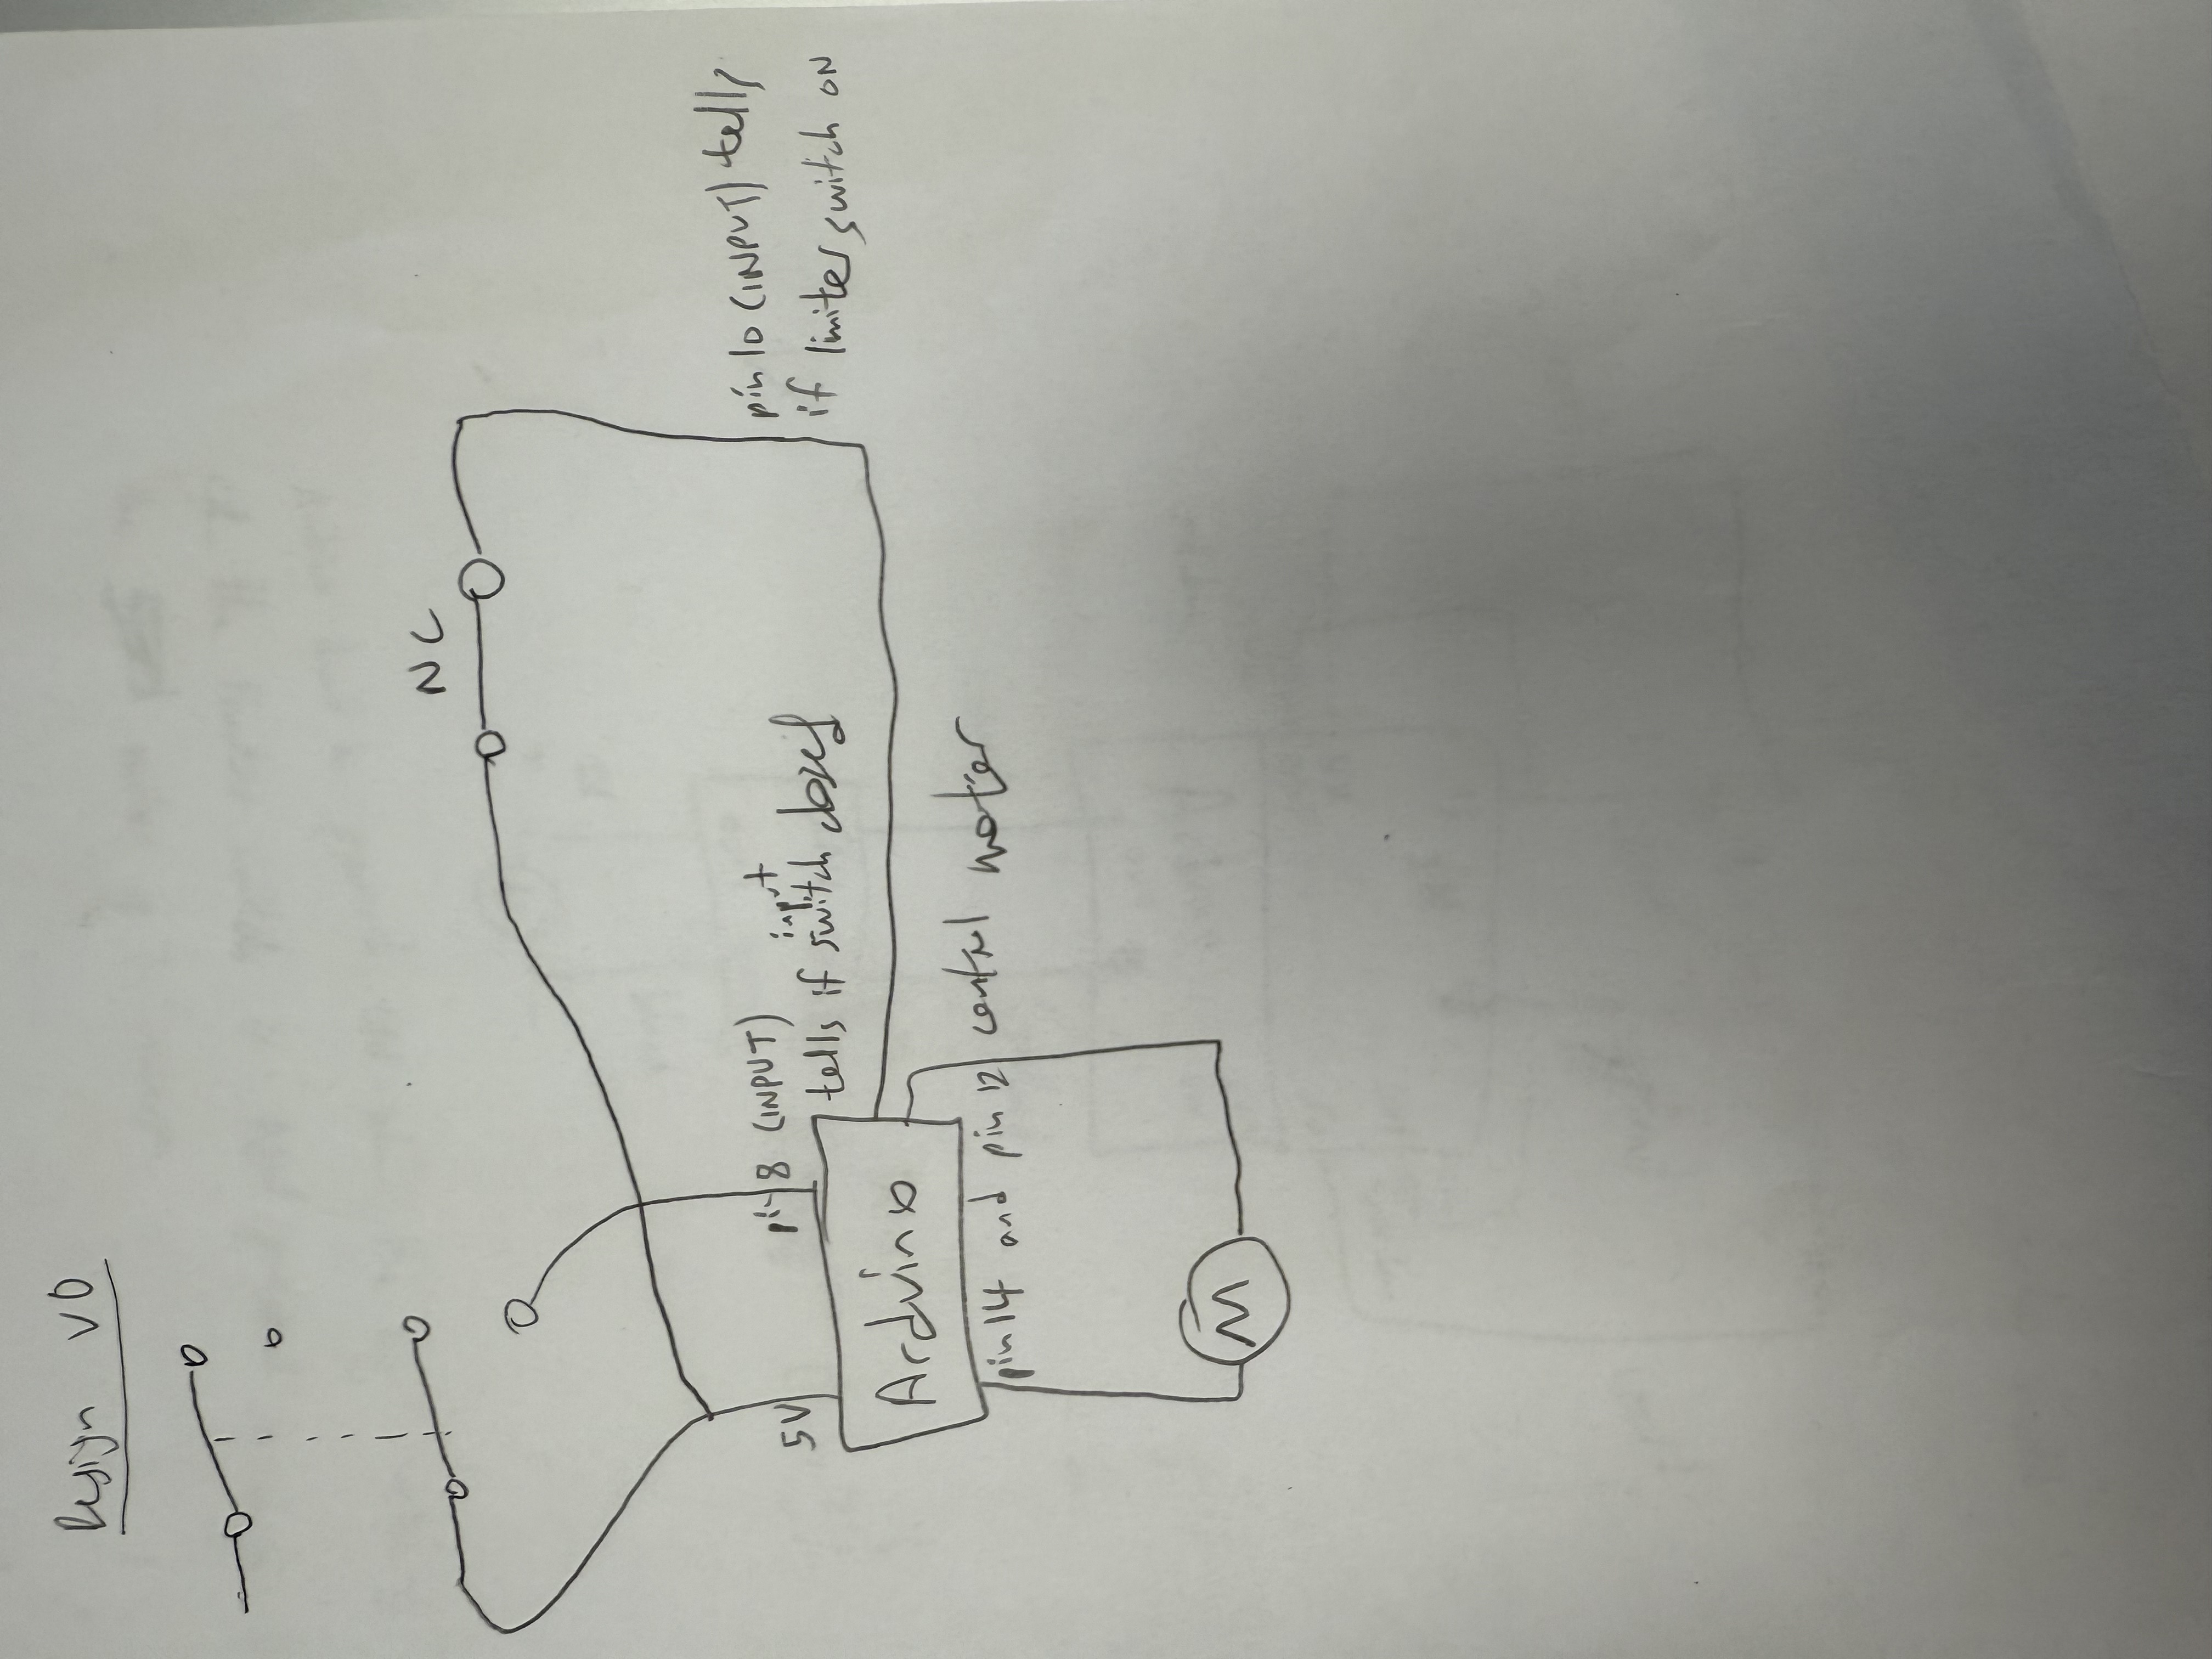 Design V0
NC
5V
pin 8 (INPUT)
tells if input switch closed
pin 10 (INPUT) tells
if limiter switch ON
Arduino
pin 14 and pin 12 control motor
M